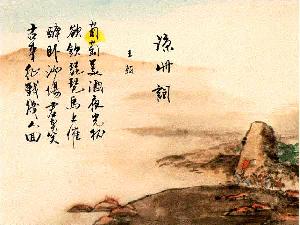 凉州詞
王翰
葡萄美酒夜光杯
欲飲琵琶馬上催
醉卧沙場君莫笑
古來征戰幾人回